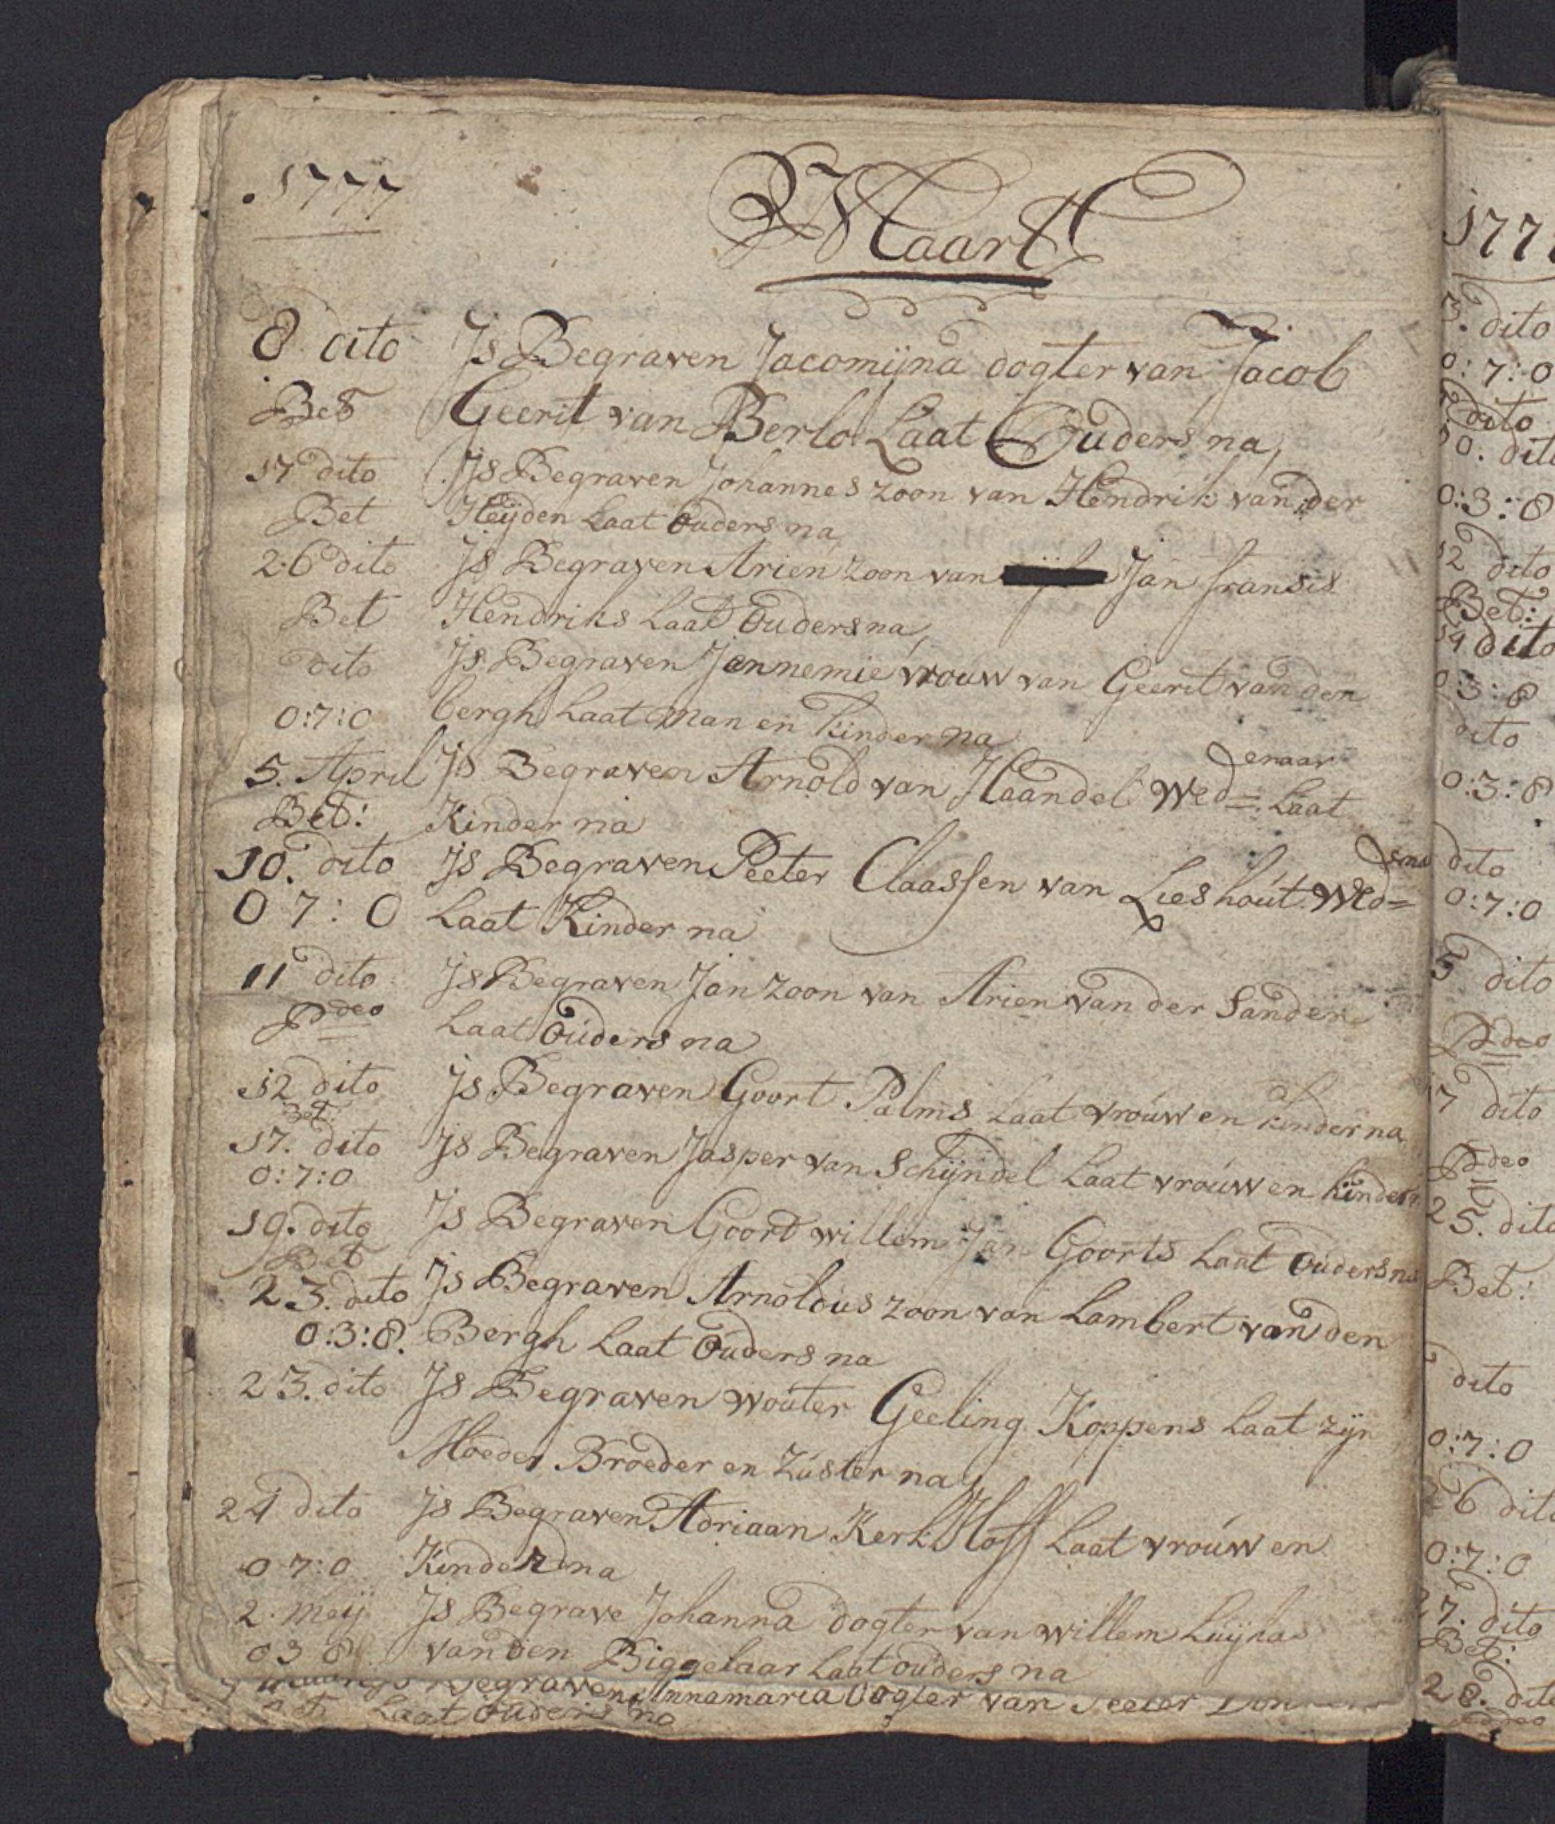 1777
Maart
8 dito Js Begraven Jacomijna dogter van Jacob
Bet Geerit van Berlo Laat Ouders na,
17 dito Js Begraven Johannes zoon van Hendrik van der
Bet Heijden Laat Ouders na,
26 dito Js Begraven Arien zoon van Jan fransis
Bet Hendriks Laat Ouders na,
dito Js Begraven Jennemie vrouw van Geerit van den
0:7:0 bergh Laat Man en Kinder na
5. April Js Begraven Arnold van Haandel Wed= enaar Laat
Bet: Kinder na
10. dito Js Begraven Peeter Claassen van Lieshout Wed=
0 7: 0 Laat Kinder na
11 dito Js Begraven Jan zoon van Arien van der Sanden
Pdeo Laat Ouders na
12 dito Js Begraven Goort Palms Laat vrouw en Kinder na
Bet
17. dito Js Begraven Jasper van Schijndel Laat vrouw en kinder
0:7:0
19. dito Js Begraven Goort willem Jan Goorts Laat Ouders na
Bet
23. dito Js Begraven Arnoldus zoon van Lambert van den
0:3:8. Bergh Laat Ouders na
23. dito Js Begraven Wouter Geeling Koppens Laat zijn
Moeder Broeder en Zuster na
24 dito Js Begraven Adriaan KerkHoff Laat vrouw en
0 7:0 Kinder na
2. Meij Js Begrave Johanna dogter van willem Luijkas
0 3 8 van den Biggelaar Laat ouders na
Begraven Annamaria Dogter van Peeter
Laat Ouders na
1777
3. dito
0:7:0
dito
10. dito
0:3:8
12 dito
Bet:
14 dito
0:3:8
dito
0:3:8
dito
0:7:0
5 dito
Pdeo
17 dito
Pdeo
25. dito
Bet:
dito
0:7:0
26 dito
0:7:0
27. dito
Bet:
28. dito